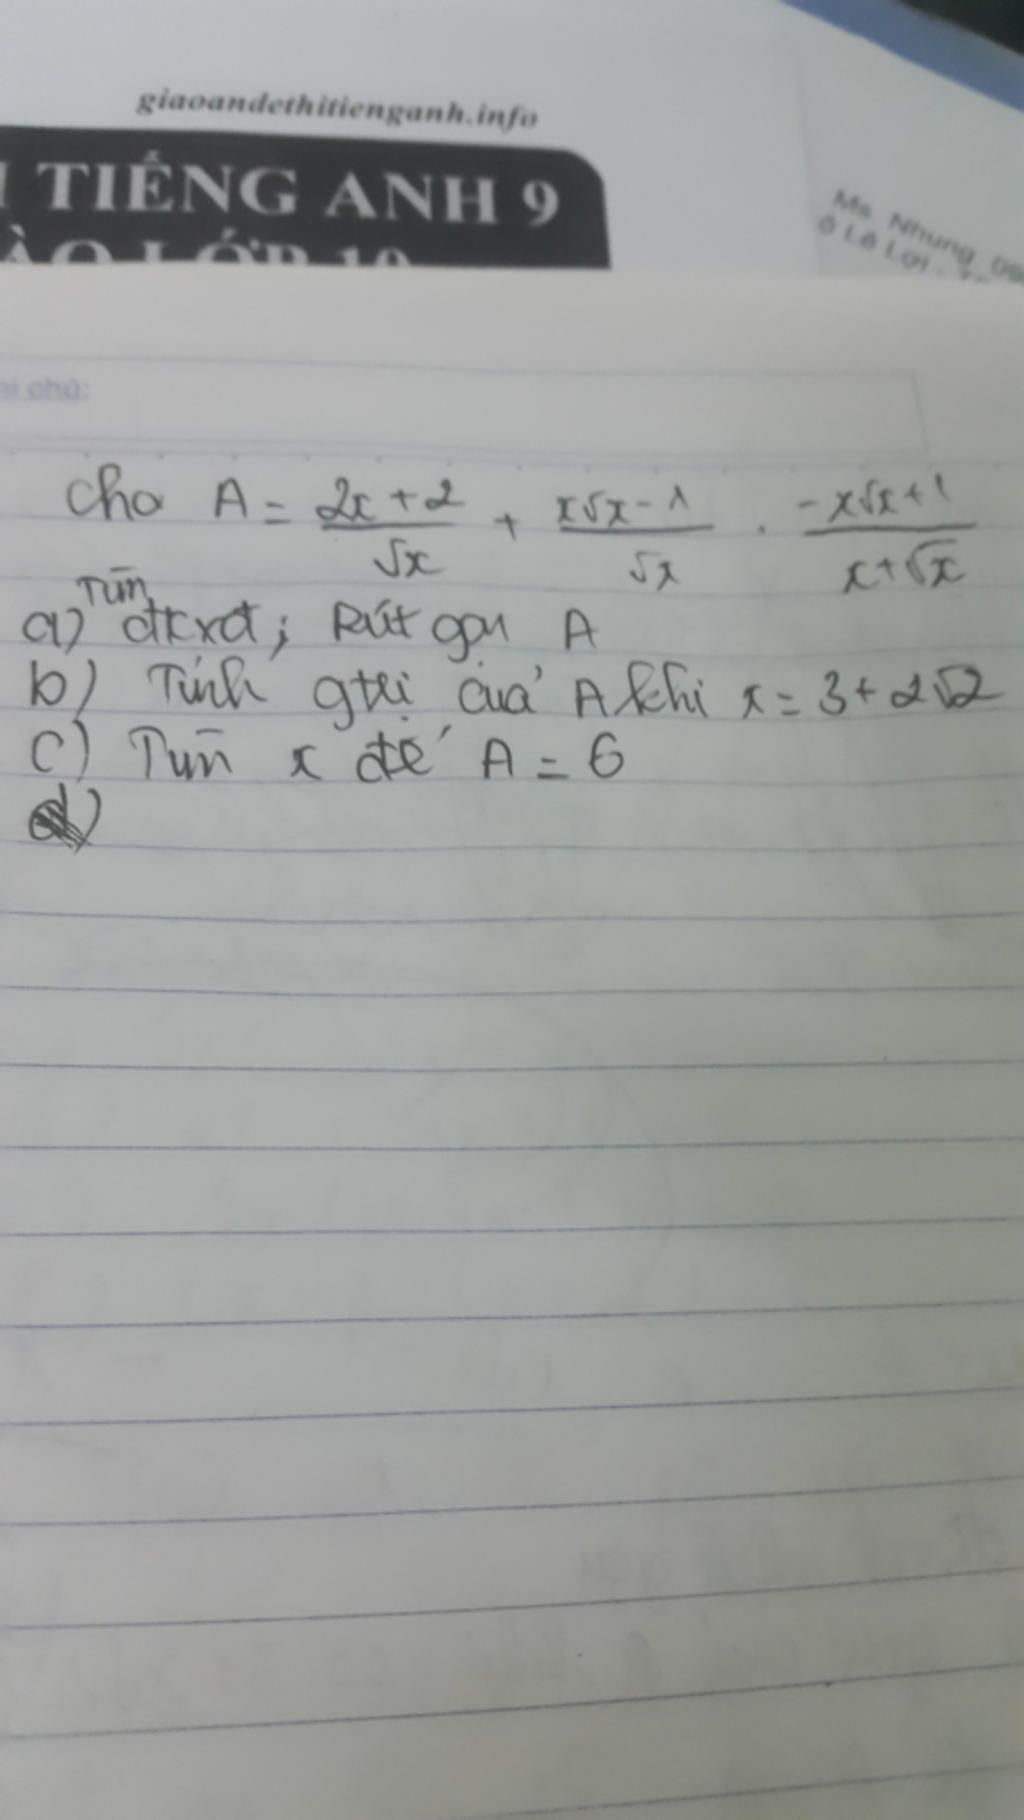 giaoandethitienganh.info
TIẾNG ANH 9
LỚP 10
Ms Nhung
Lê Lợi
chú:
Cho A = \frac{2x+2}{\sqrt{x}} + \frac{x\sqrt{x}-1}{\sqrt{x}} . \frac{-x\sqrt{x}+1}{x+\sqrt{x}}
Tìm
a) đkxđ; Rút gọn A
b) Tính gtrị của A khi x = 3+2√2
c) Tìm x để A = 6
d)